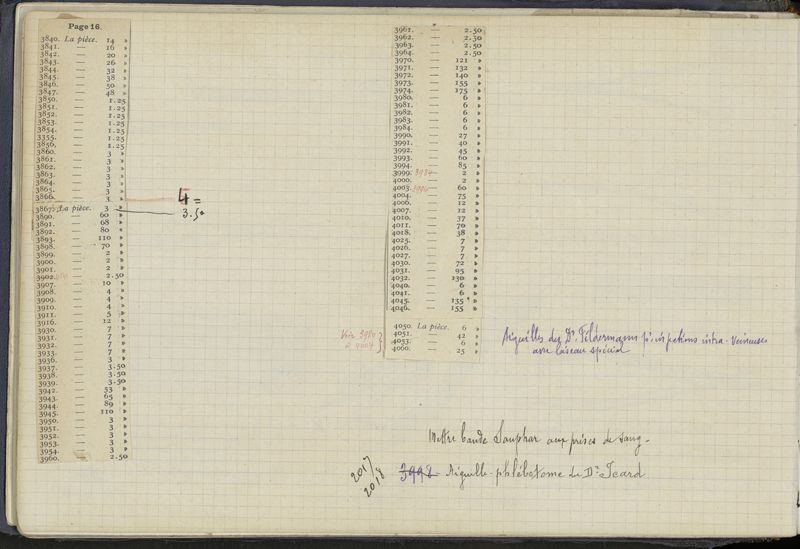 Page 16.
3840. La pièce. 14 »
3841. — 16 »
3842. — 20 »
3843. — 26 »
3844. — 32 »
3845. — 38 »
3846. — 50 »
3847. — 48 »
3850. — 1.25
3851. — 1.25
3852. — 1.25
3853. — 1.25
3854. — 1.25
3355. — 1.25
3856. — 1.25
3860. — 3 »
3861. — 3 »
3862. — 3 »
3863. — 3 »
3864. — 3 »
3865. — 3 »
3866. — 3 »
4 =
3867. La pièce. 3 »
3.50
3890. — 60 »
3891. — 68 »
3892. — 80 »
3893. — 110 »
3898. — 70 »
3899. — 2 »
3900. — 2 »
3901. — 2 »
3902. — 2.50
3907. — 10 »
3908. — 4 »
3909. — 4 »
3910. — 4 »
3911. — 5 »
3916. — 12 »
3930. — 7 »
3931. — 7 »
3932. — 7 »
3933. — 7 »
3936. — 3 »
3937. — 3.50
3938. — 3.50
3939. — 3.50
3942. — 53 »
3943. — 65 »
3944. — 89 »
3945. — 110 »
3950. — 3 »
3951. — 3 »
3952. — 3 »
3953. — 3 »
3954. — 3 »
3960. — 2.50
3961. — 2.50
3962. — 2.50
3963. — 2.50
3964. — 2.50
3970. — 121 »
3971. — 132 »
3972. — 140 »
3973. — 155 »
3974. — 175 »
3980. — 6 »
3981. — 6 »
3982. — 6 »
3983. — 6 »
3984. — 6 »
3990. — 27 »
3991. — 40 »
3992. — 45 »
3993. — 60 »
3994. — 85 »
3999. — 2 »
4000. — 2 »
4003. — 60 »
4004. — 75 »
4006. — 12 »
4007. — 12 »
4010. — 37 »
4011. — 70 »
4018. — 38 »
4025. — 7 »
4026. — 7 »
4027. — 7 »
4030. — 72 »
4031. — 95 »
4032. — 130 »
4040. — 6 »
4041. — 6 »
4045. — 135 »
4046. — 155 »
4050. La pièce. 6 »
4051. — 42 »
4053. — 6 »
4060. — 25 »
Voir 3980
à 4004
Aiguilles du Dr. Feldermann pr. injections intra-veineuses
avec biseau spécial
Mettre bande Sauphar aux prises de sang.
2017
2018
3998 Aiguille-phlébotome du Dr Icard